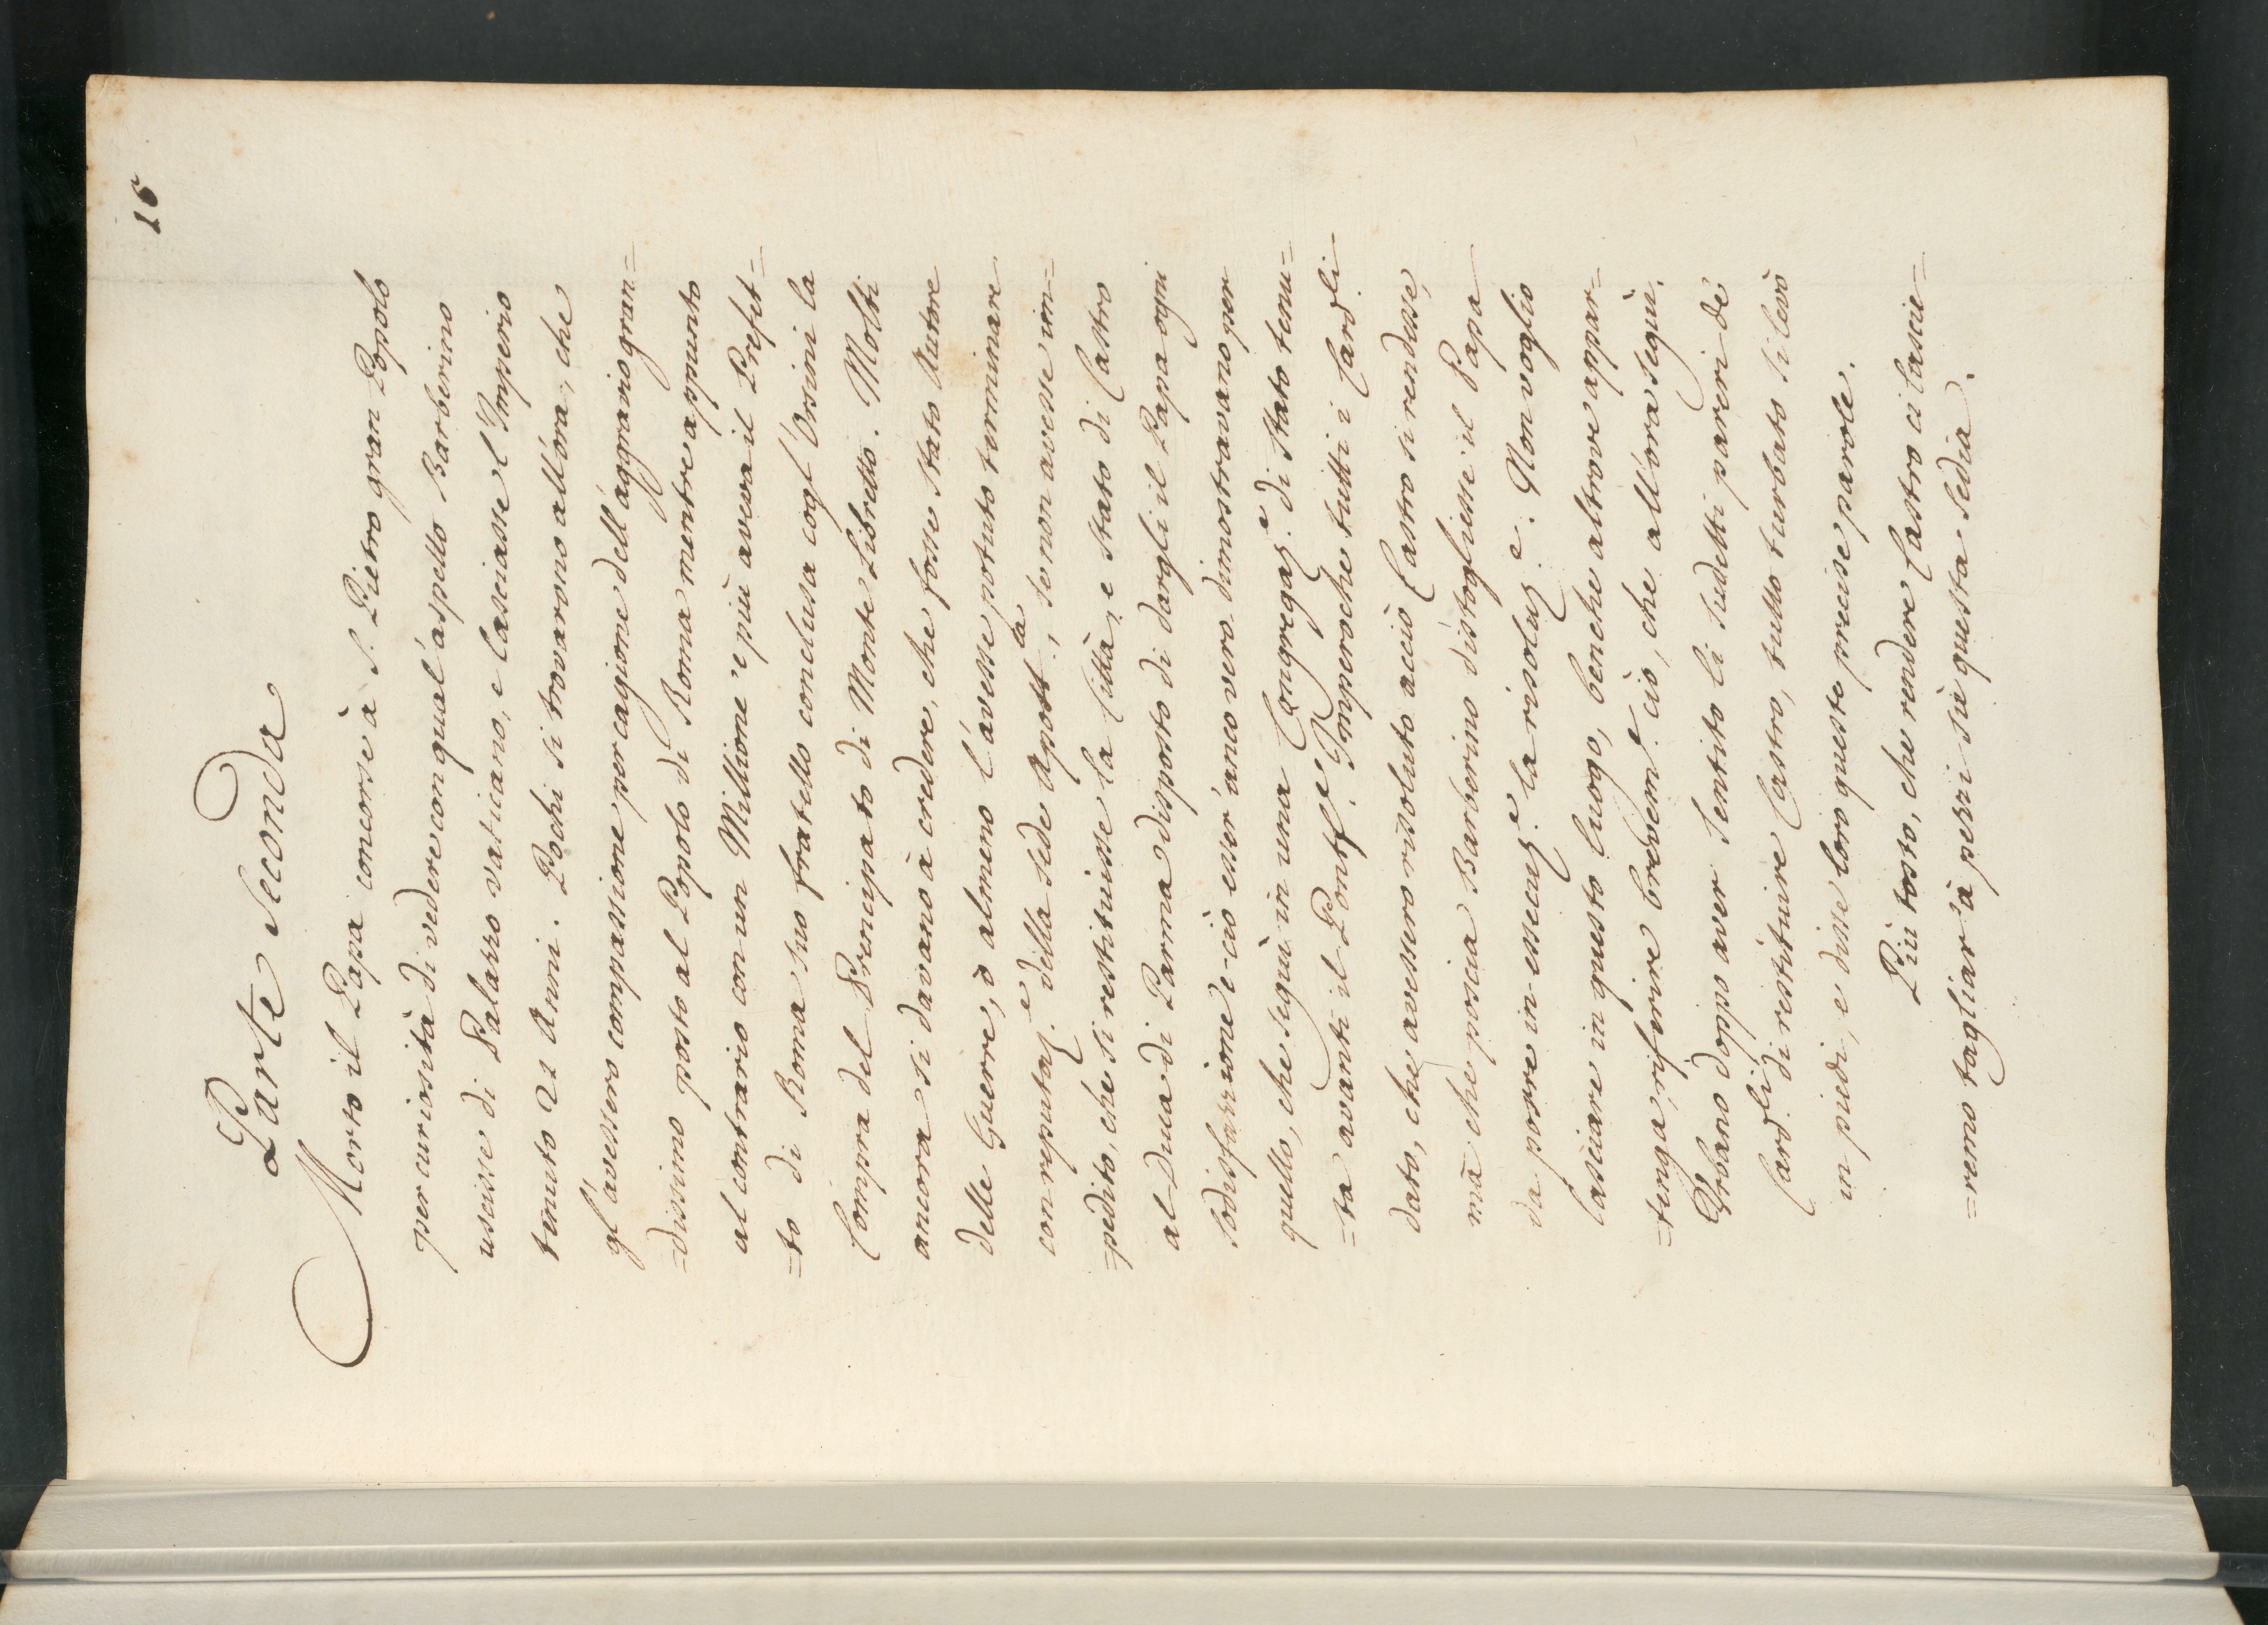 16
Parte Seconda
Morto il Papa concorse à S. Pietro gran Popolo
per curiosità di vedere con qual'aspetto Barberino
uscisse di Palazzo Vaticano, e lasciasse l'Imperio
tenuto 21 Anni. Pochi si trovarono all'ora, che
gl'avessero compassione per cagione dell'aggravio gran=
=dissimo posto al Popolo di Roma mentre appunto
al contrario con un Millione e più aveva il Prefet=
=to di Roma suo fratello conclusa cogl'Orsini la
Compra del Prencipato di Monte Libretto. Molti
ancora si davano à credere, che fosse stato Autore
delle Guerre, ò almeno l'avesse potuto terminare
con reputaz.e della Sede Apost.la, se non avesse im=
=pedito, che si restituisse la Città, e Stato di Castro
al Duca di Parma disposto di dargli il Papa ogni
sodisfazzione e ciò esser'anco vero dimostravano per
quello, che seguì in una Congregaz.e di Stato tenu=
=ta avanti il Pontef.e Imperoche tutti i Card.li
dato, che avessero risoluto acciò Castro si rendesse,
mà che poscia Barberino distogliesse il Papa
da porre in essecuz.e la risoluz.e. Non voglio
lasciare in questo luogo, benche altrove appar=
=tenga, riferire brevem.e ciò, che all'ora seguì.
Urbano doppo aver sentito li sudetti pareri de
Card.li di restituire Castro, tutto turbato si levò
in piedi, e disse loro queste precise parole.
Più tosto, che rendere Castro ci lascie=
=remo tagliar'à pezzi sù questa Sedia.